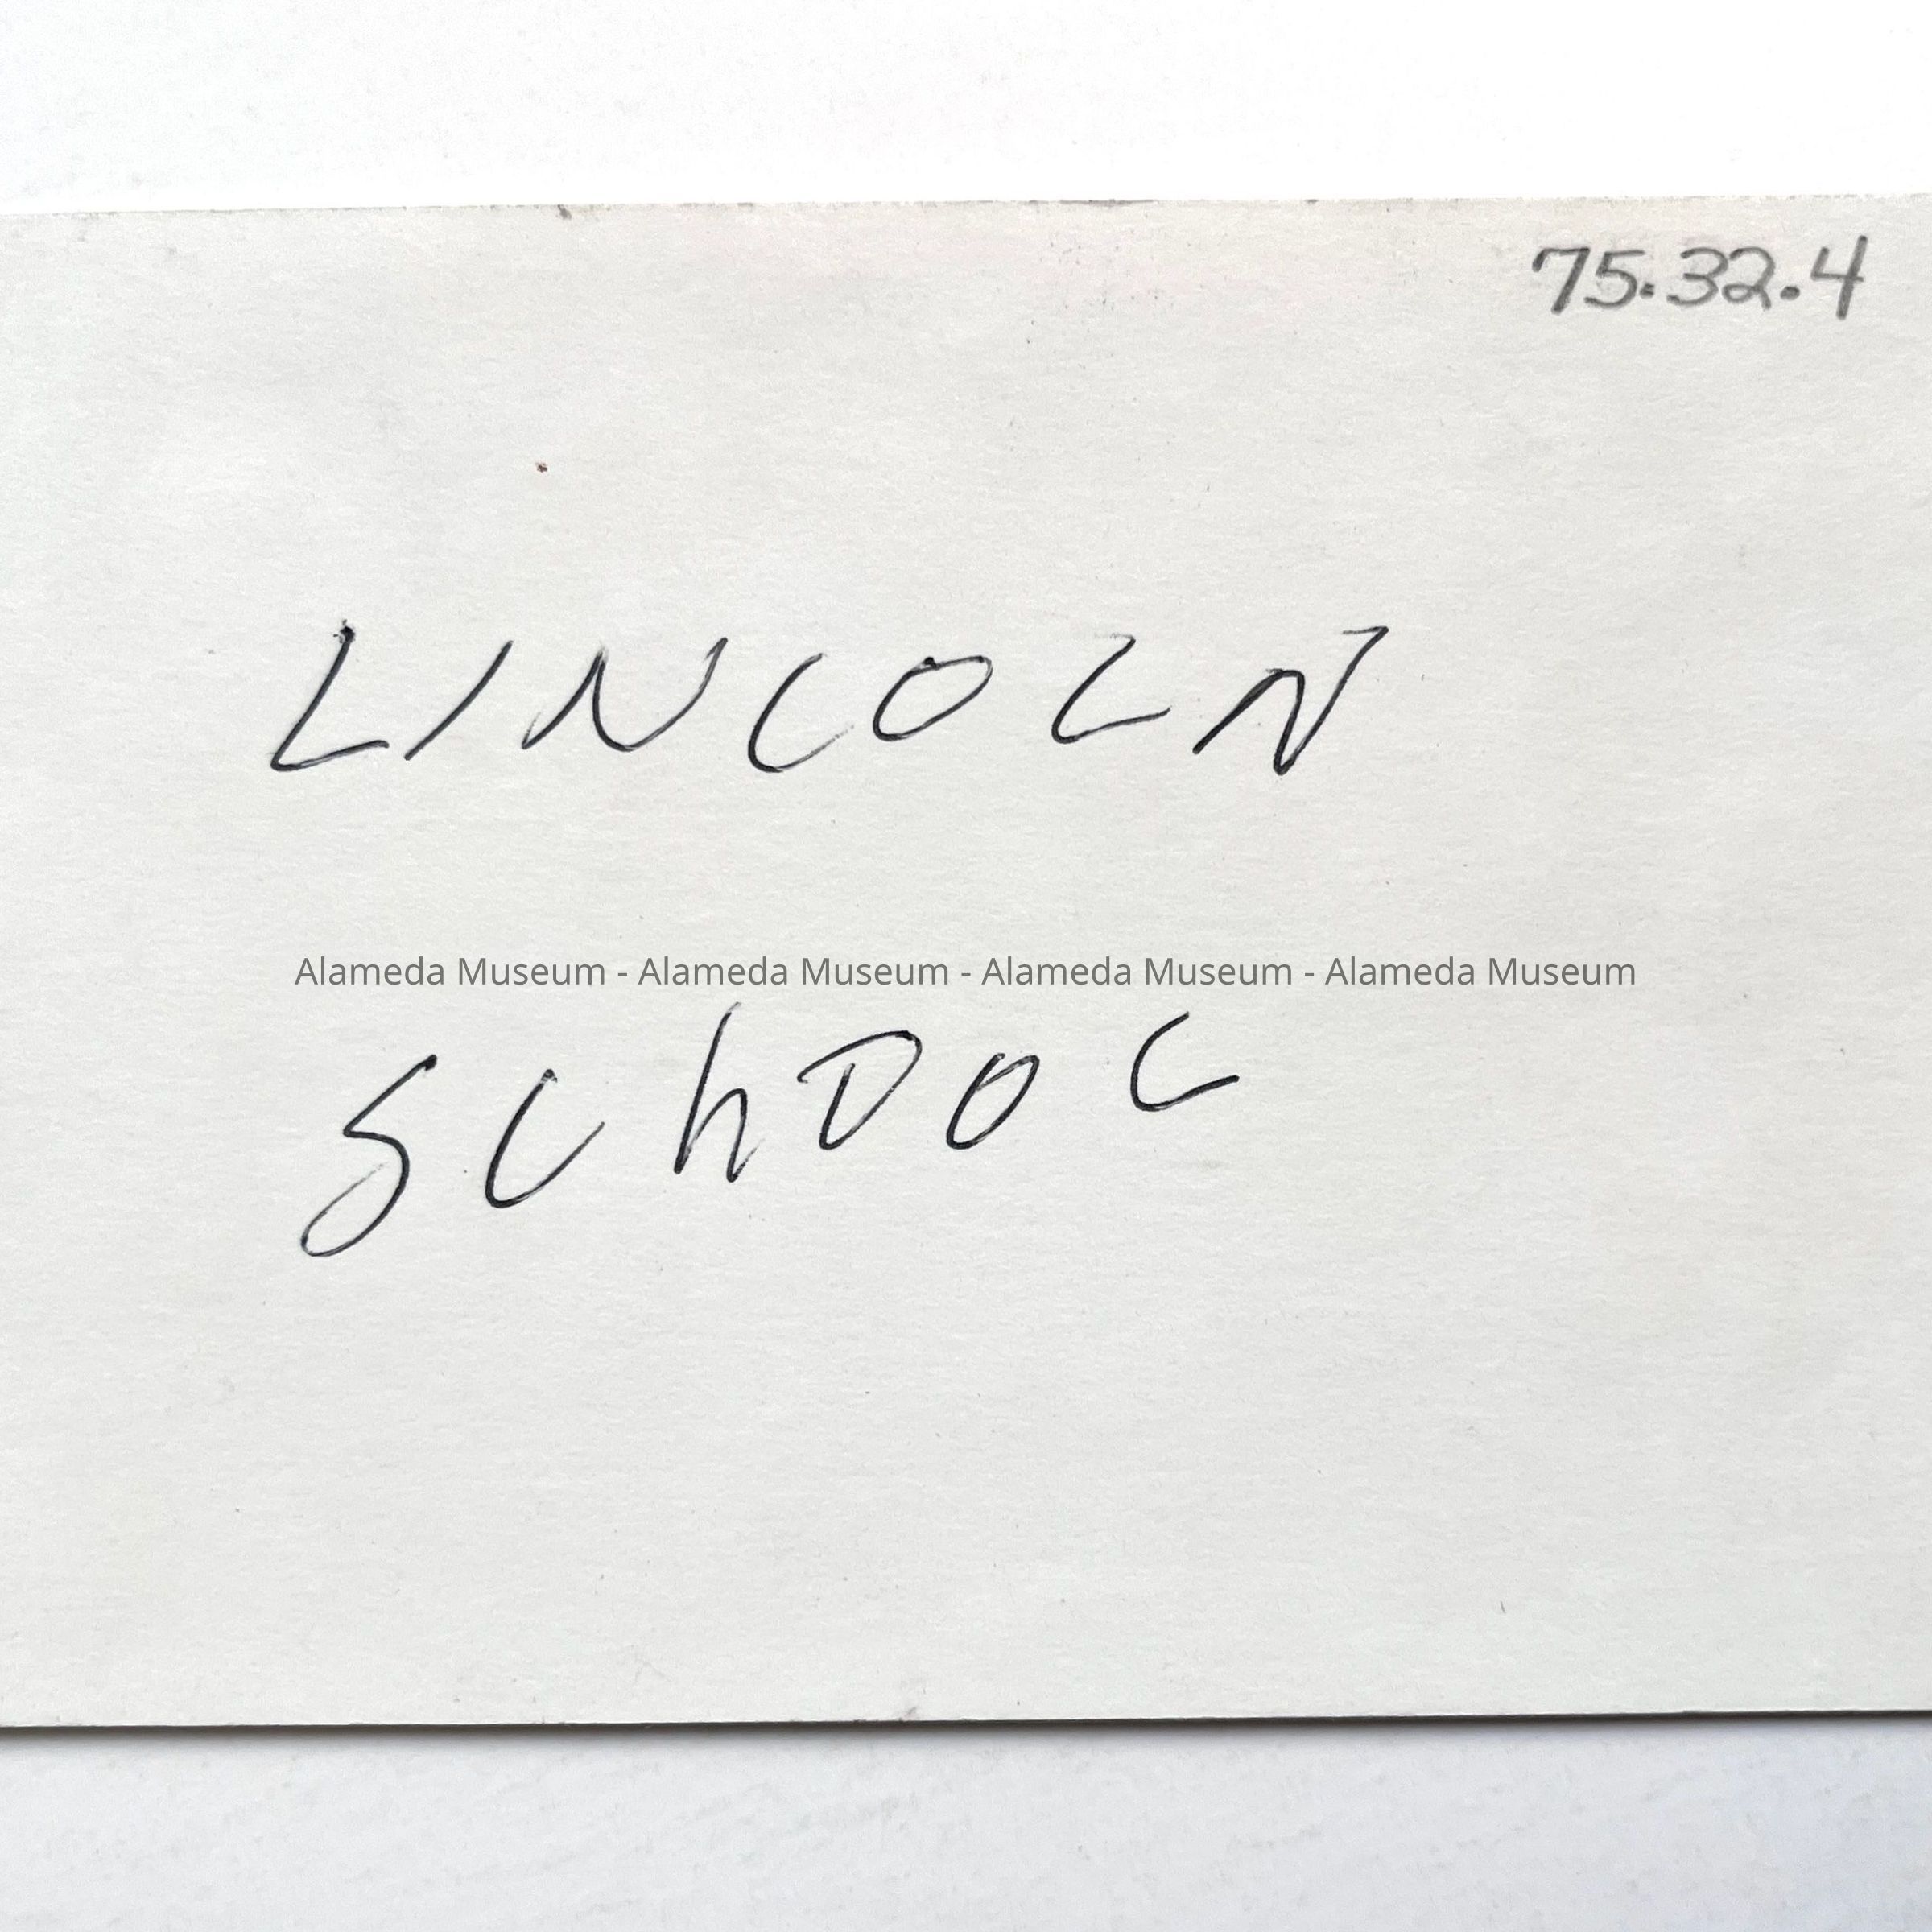 75.32.4
LINCOLN
Alameda Museum - Alameda Museum - Alameda Museum - Alameda Museum
SCHOOL